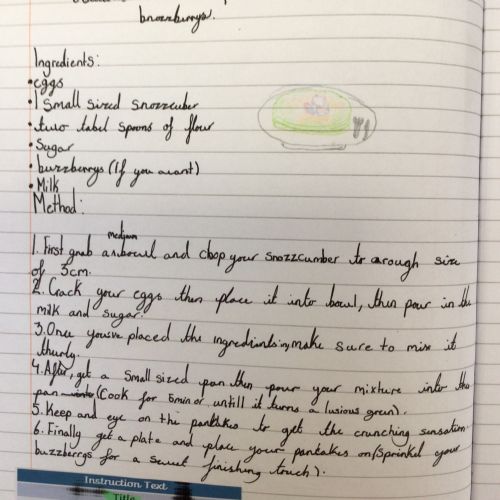 bnozzberrys.
Ingredients:
• eggs
• 1 small sized snozzcuber
• two tabel spoons of flour
• Sugar
• buzzberrys (If you want)
• Milk
Method:
medium
1. First grab a bowl and chop your snozzcumber to a rough size
of 5cm.
2. Crack your eggs then place it into bowl, then pour in the
milk and sugar.
3. Once youve placed the ingredients in, make sure to mix it
thurly.
4. After, get a small sized pan then pour your mixture into the
pan (Cook for 5min or untill it turns a lusious green).
5. Keep and eye on the pankakes to get the crunching sensation.
6. Finally get a plate and place your pantakes on (Sprinkel your
buzzberrys for a sweet finishing touch).
Instruction Text
Title